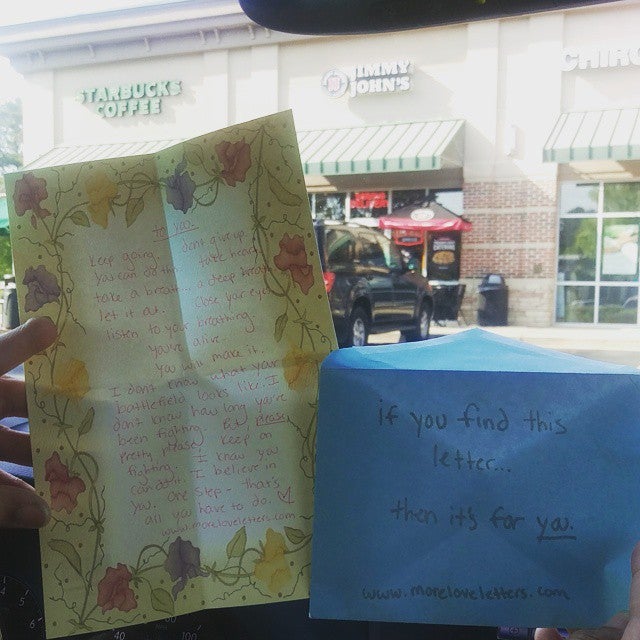 STARBUCKS
COFFEE
JIMMY
JOHN'S
CHIRO
to you.
Keep going, don't give up.
You can do this. take heart,
take a breath - a deep breath
let it out. Close your eyes
listen to your breathing.
You're alive.
You will make it.
I don't know what your
battlefield looks like. I
don't know how long you've
been fighting. But please
pretty please, keep on
fighting. I know you
can do it. I believe in
you. One step - that's
all you have to do.
www.moreloveletters.com
if you find this
letter...
then it's for you.
www.moreloveletters.com